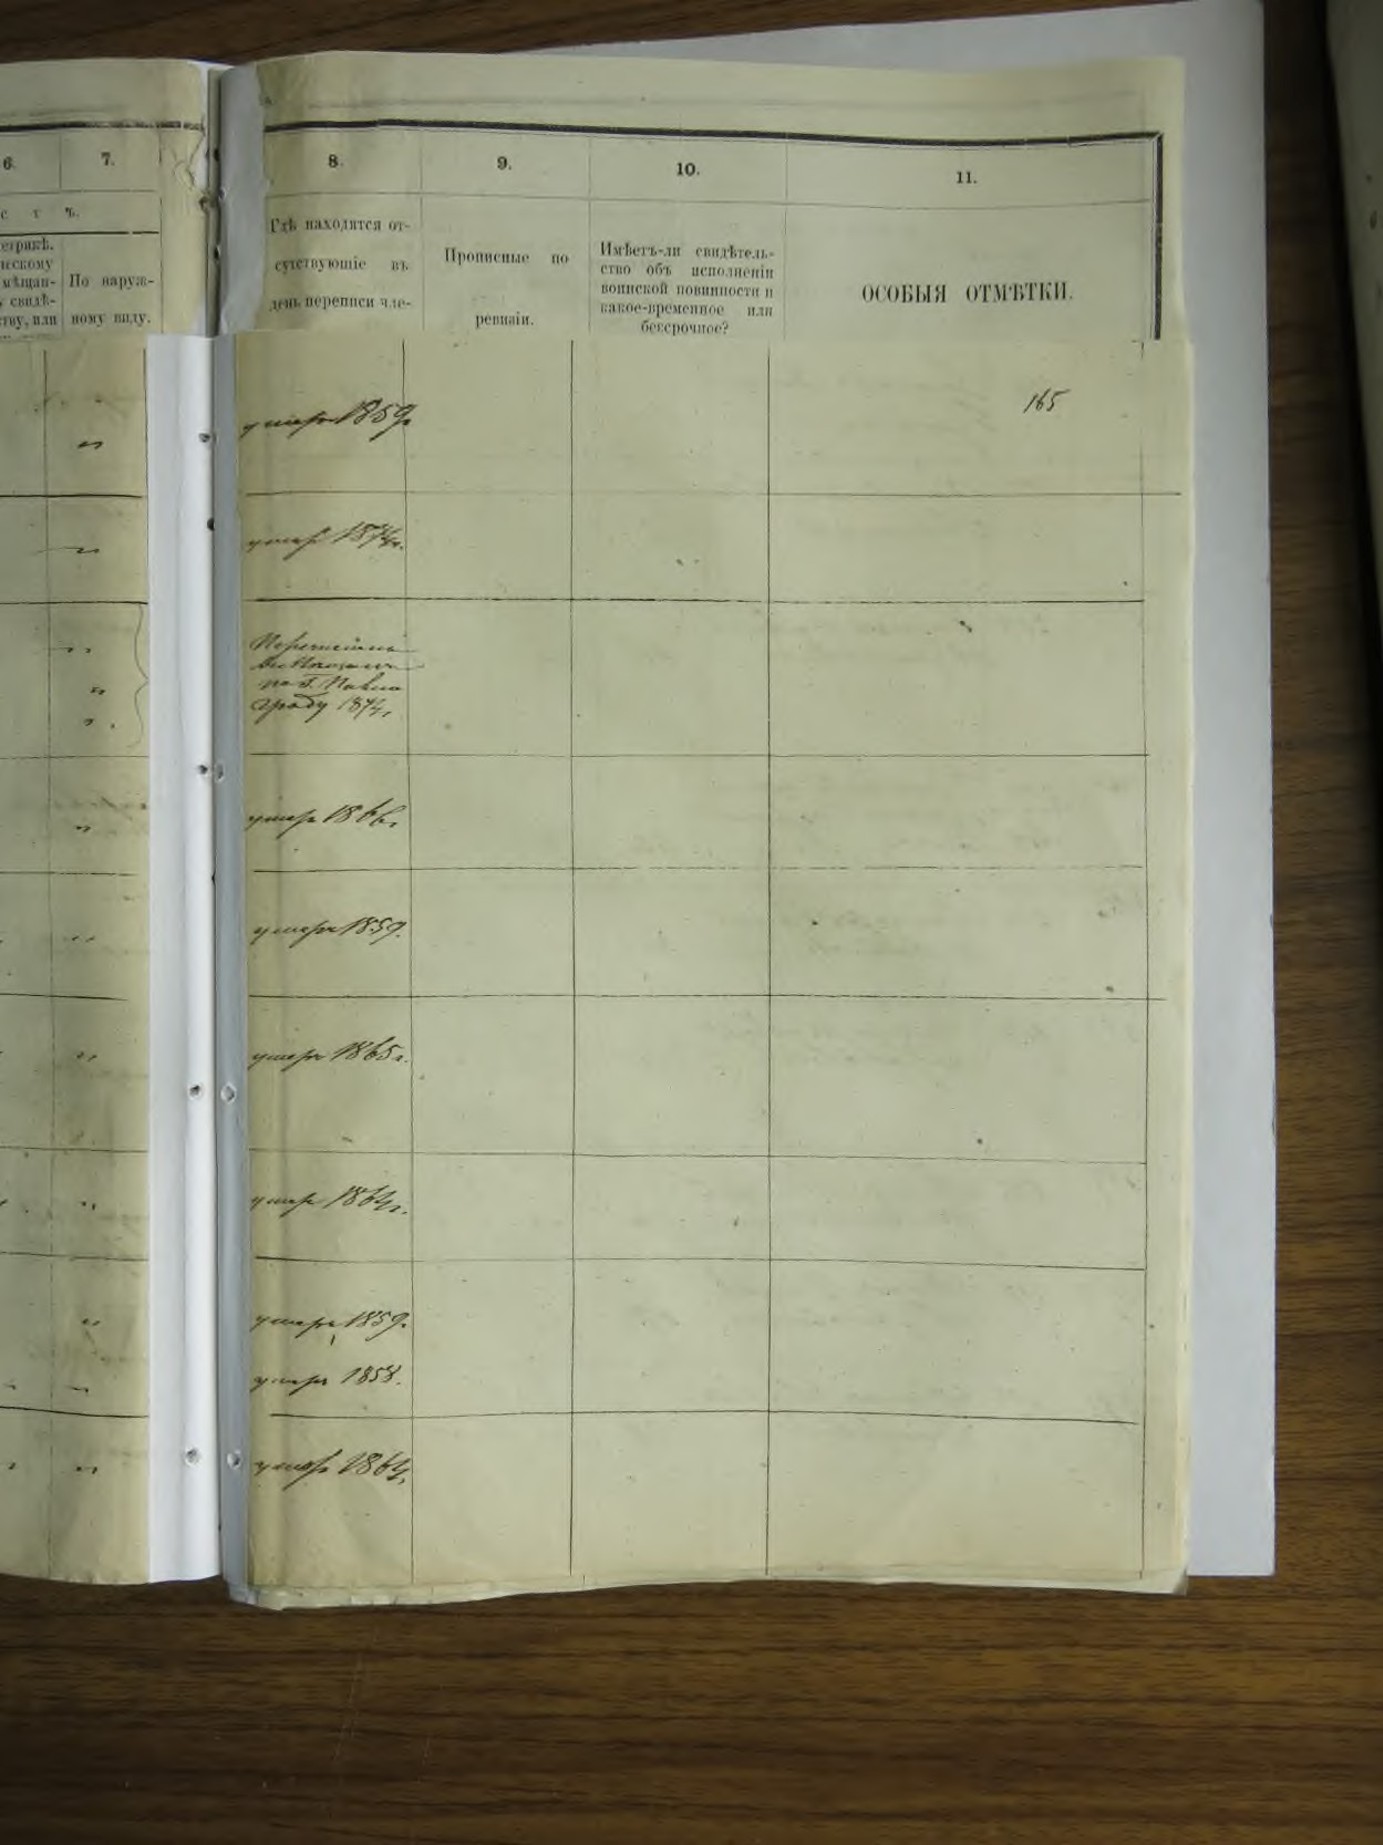 6.
7.
8.
9.
10.
11.
с т ъ.
етрикѣ.
ческому
мѣщан-
у свидѣ-
ству, или
По наруж-
ному виду.
Гдѣ находятся от-
сутствующіе въ
день переписи чле-
Прописные по
ревизіи.
Имѣетъ-ли свидѣтель-
ство объ исполненіи
воинской повинности и
какое-временное или
безсрочное?
ОСОБЫЯ ОТМѢТКИ.
165
умеръ 1859г.
умеръ 1874г.
граду 1874г.
умеръ 1866г.
умеръ 1859.
умеръ 1865г.
умеръ 1864г.
умеръ 1859.
умеръ 1858.
умеръ 1864г.